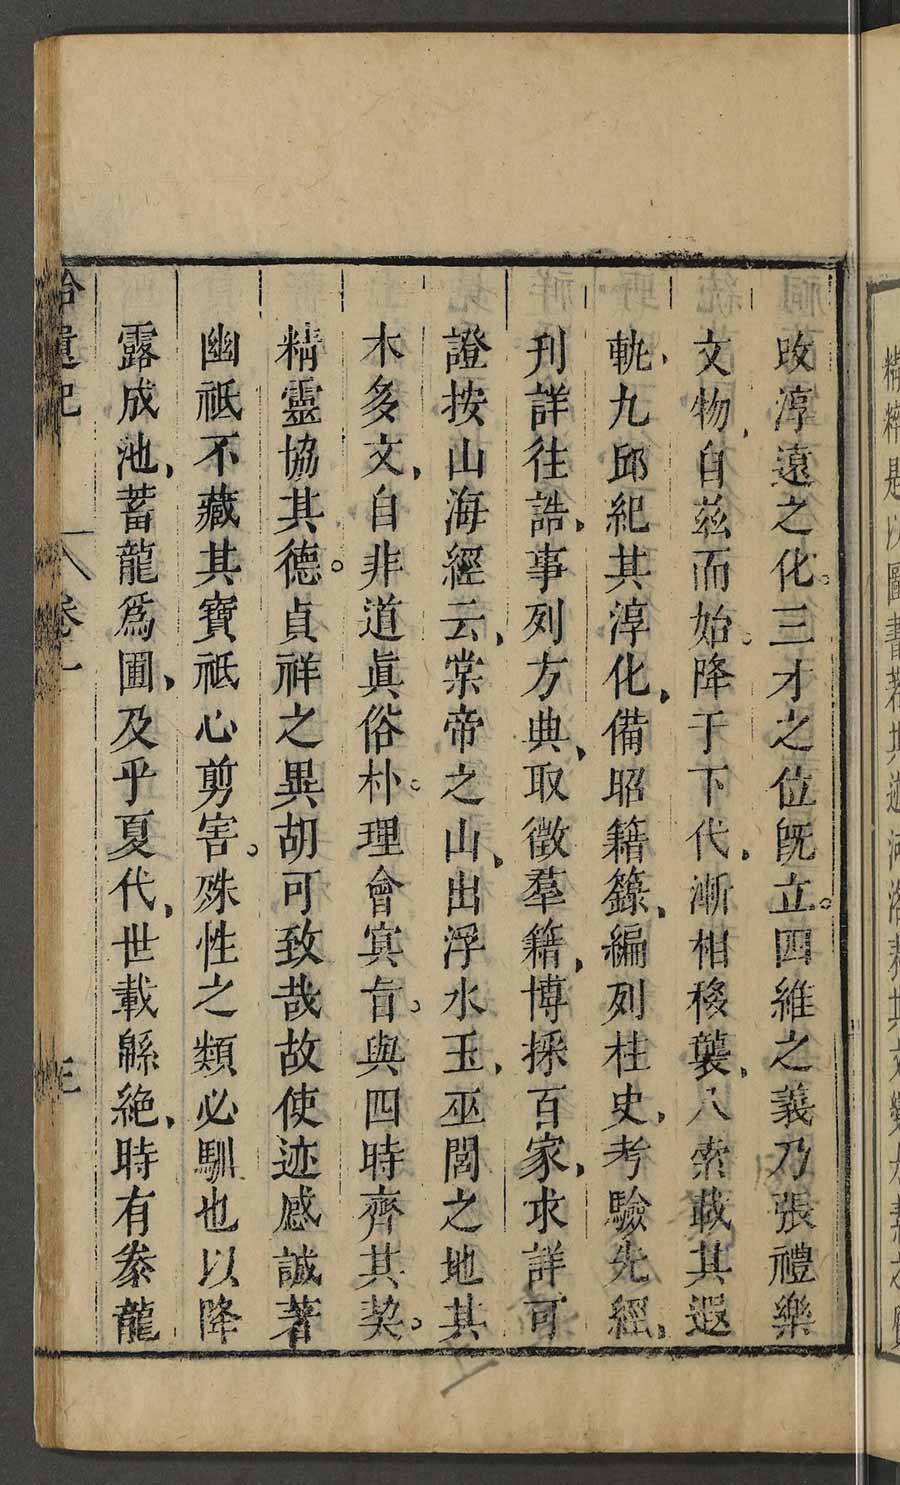 攺淳遠之化。三才之位旣立。四維之義乃張禮樂
文物、自茲而始。降于下代、漸相移襲、八索載其遐
軌、九邱紀其淳化、備昭籍籙、編列柱史、考驗先經、
刋詳往誥、事列方典、取徵羣籍、博採百家、求詳可
證按山海經云、棠帝之山、出浮水玉、巫閭之地其
木多文、自非道眞俗朴。理會㝠旨。與四時齊其契。
精靈協其德。貞祥之異胡可致哉故使迹感誠著
幽祇不藏其寶祇心剪害。殊性之類必馴也以降
露成池、蓄龍爲圃、及乎夏代、世載緜絶、時有豢龍
拾遺記
卷一
三